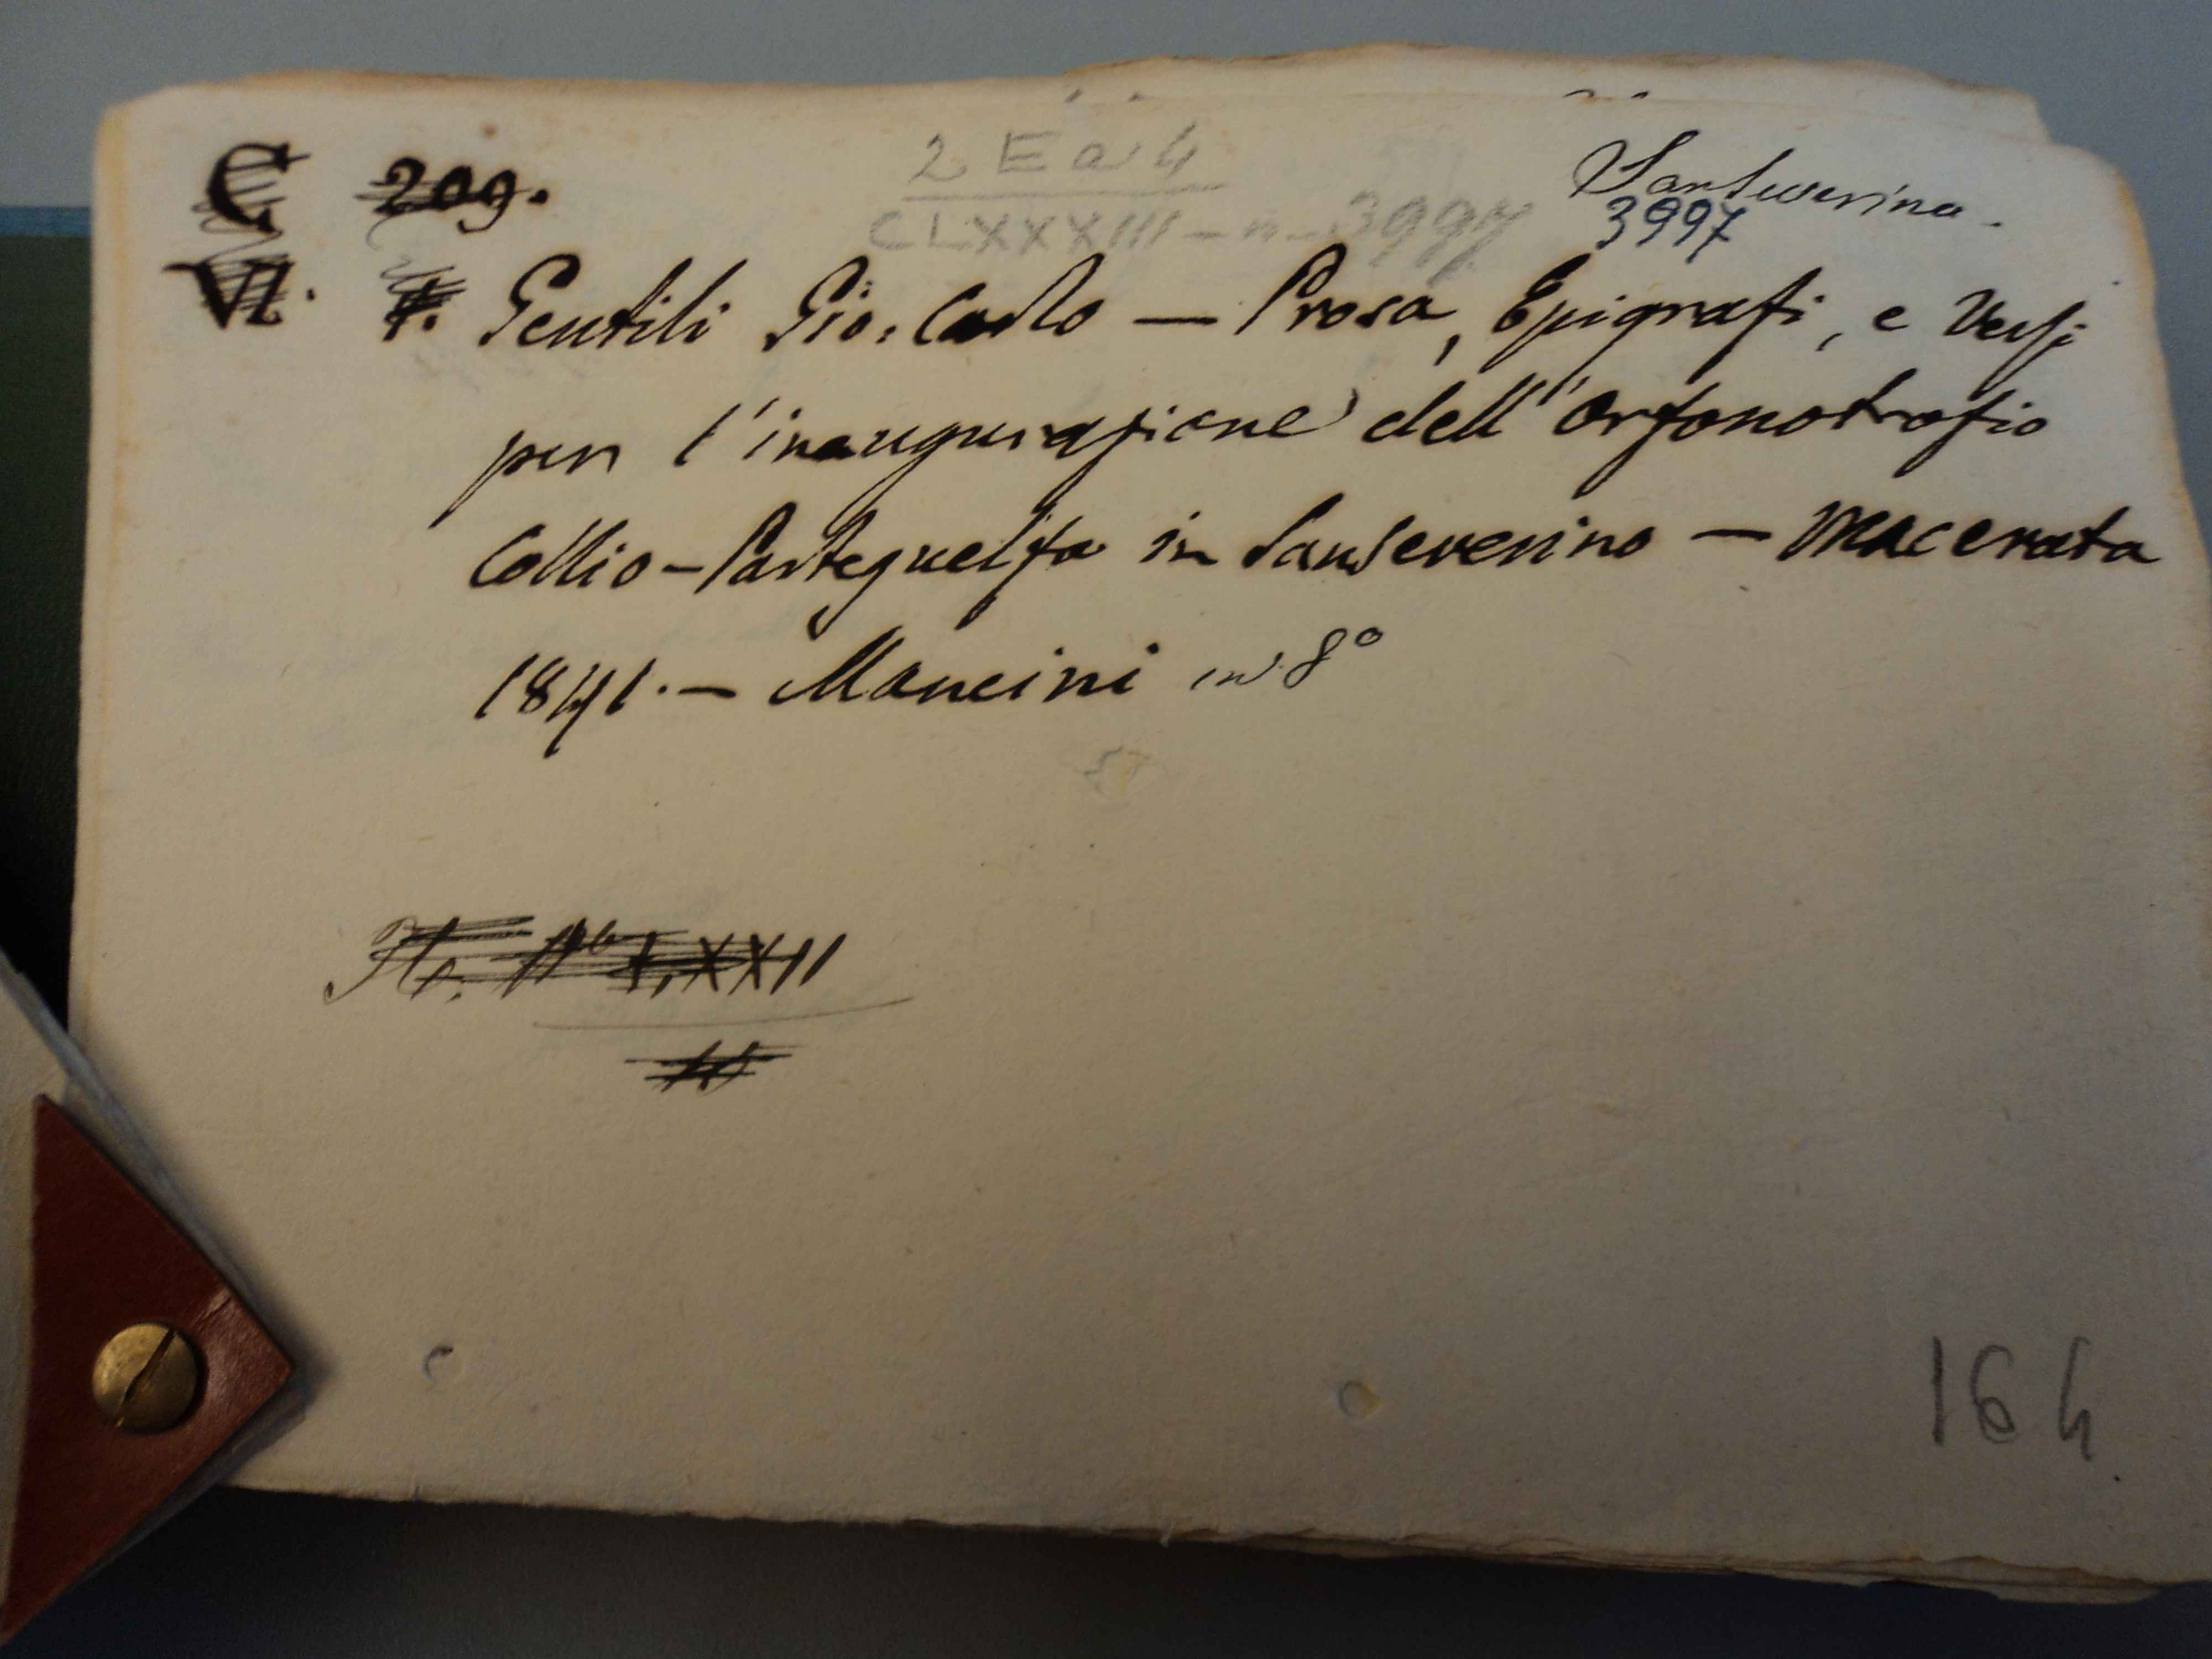 C 209.
2 E a 4
Sanseverino.
CLXXXIII - n. 3997
3997
VI. Gentili Gio: Carlo — Prosa, Epigrafi, e Versi
per l'inaugurazione dell'Orfanotrofio
Collio-Parteguelfa in Sanseverino — Macerata
1841. — Mancini in 8°
LXXII
164